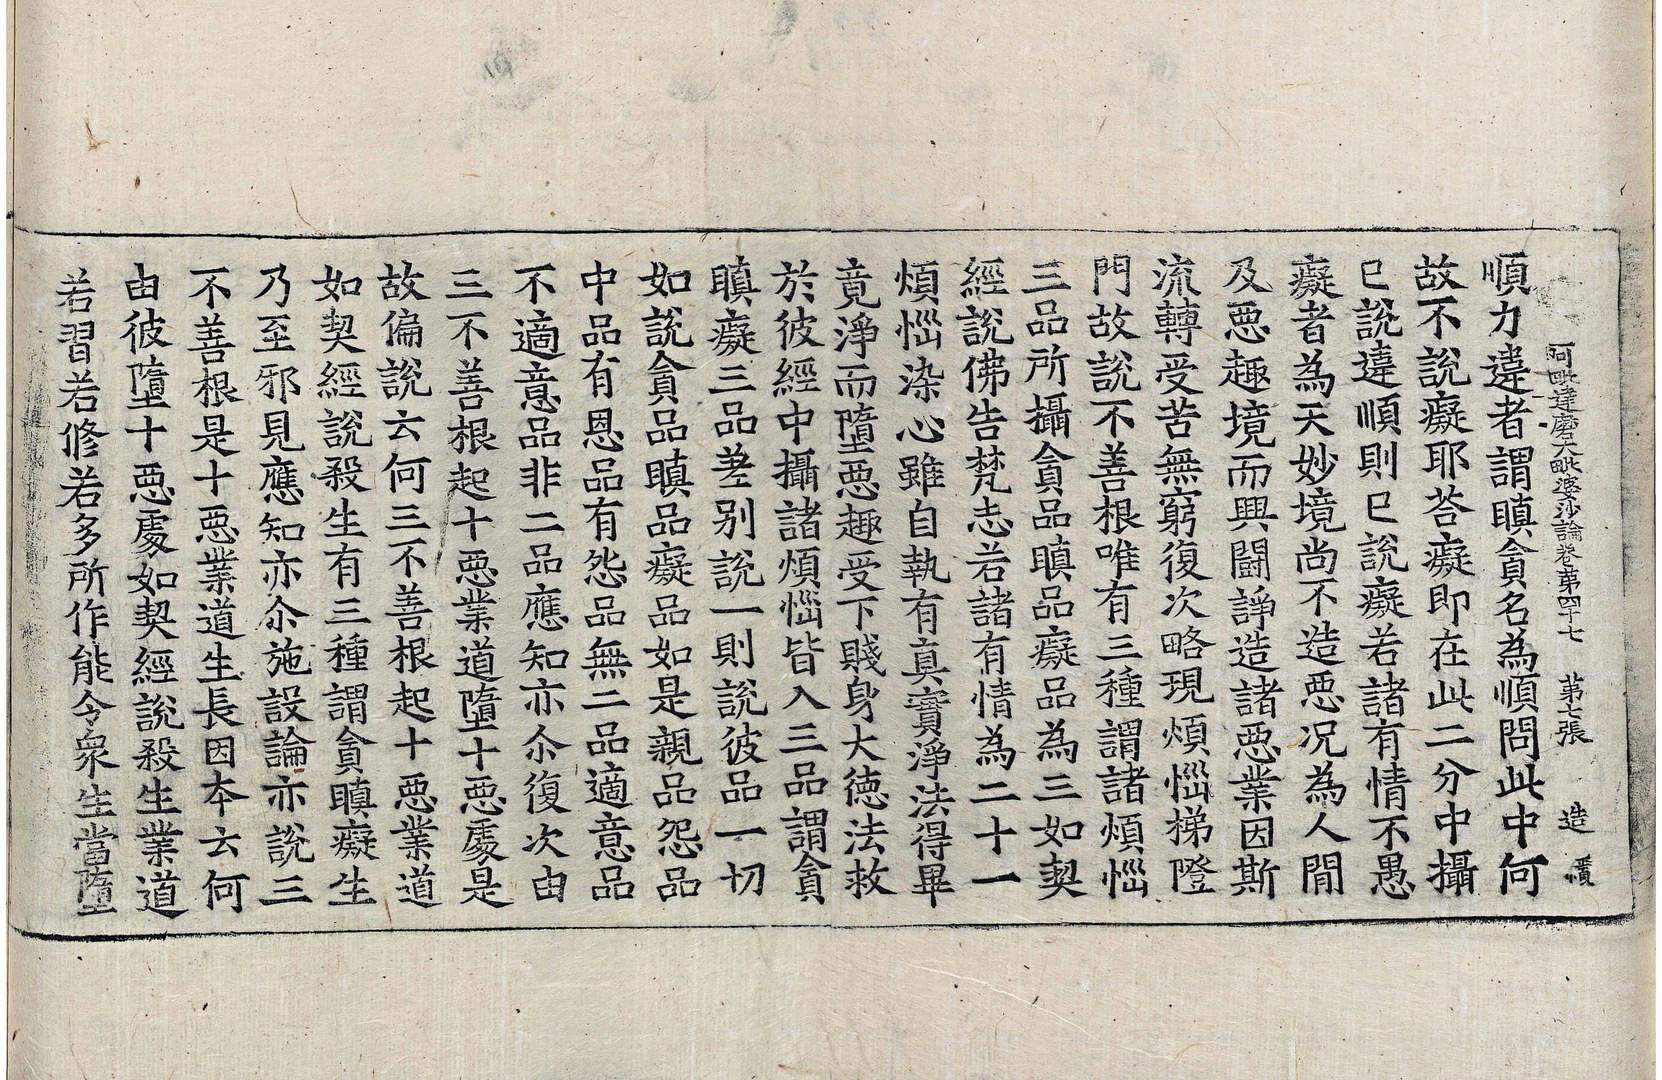 阿毗達磨大毗婆沙論卷第四十七　第七張　造
順力違者謂瞋貪名為順問此中何
故不說癡耶荅癡即在此二分中攝
已說違順則已說癡若諸有情不愚
癡者為天妙境尚不造惡況為人閒
及惡趣境而興鬪諍造諸惡業因斯
流轉受苦無窮復次略現煩惱梯隥
門故說不善根唯有三種謂諸煩惱
三品所攝貪品瞋品癡品為三如契
經說佛告梵志若諸有情為二十一
煩惱染心雖自執有真實淨法得畢
竟淨而墮惡趣受下賤身大德法救
於彼經中攝諸煩惱皆入三品謂貪
瞋癡三品差别說一則說彼品一切
如說貪品瞋品癡品如是親品怨品
中品有恩品有怨品無二品適意品
不適意品非二品應知亦尒復次由
三不善根起十惡業道墮十惡處是
故偏說云何三不善根起十惡業道
如契經說殺生有三種謂貪瞋癡生
乃至邪見應知亦尒施設論亦說三
不善根是十惡業道生長因本云何
由彼墮十惡處如契經說殺生業道
若習若修若多所作能令衆生當墮